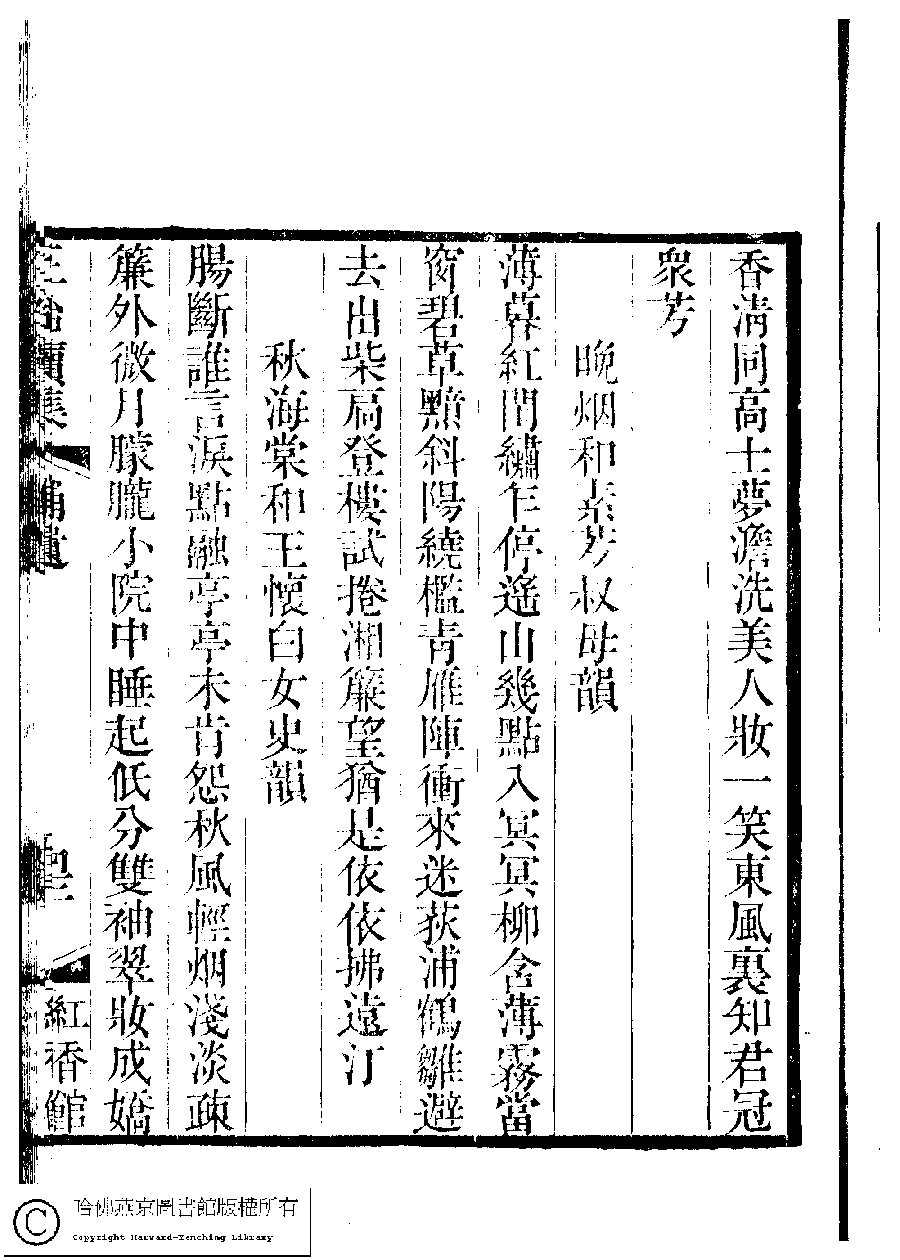 香清同高士夢澹洗美人妝一笑東風裏知君冠
衆芳
晚烟和素芳叔母韻
薄暮紅閨繡乍停遙山幾點入冥冥柳含薄霧當
窗碧草黯斜陽繞檻青雁陣衝來迷荻浦鶴雛避
去出柴扃登樓試捲湘簾望猶是依依拂遠汀
秋海棠和王懷白女史韻
腸斷誰言淚點融亭亭未肯怨秋風輕烟淺淡疎
簾外微月朦朧小院中睡起低分雙袖翠妝成嬌
續集 補遺
紅香館
哈佛燕京圖書館版權所有
Copyright Harvard-Yenching Library